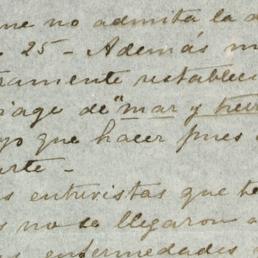 me no admita la a
25 - Además m
amente restablec
iage de "mar y tier
yo que hacer pues
arte -
s entrevistas que te
s no se llegaron a
as enfermedades